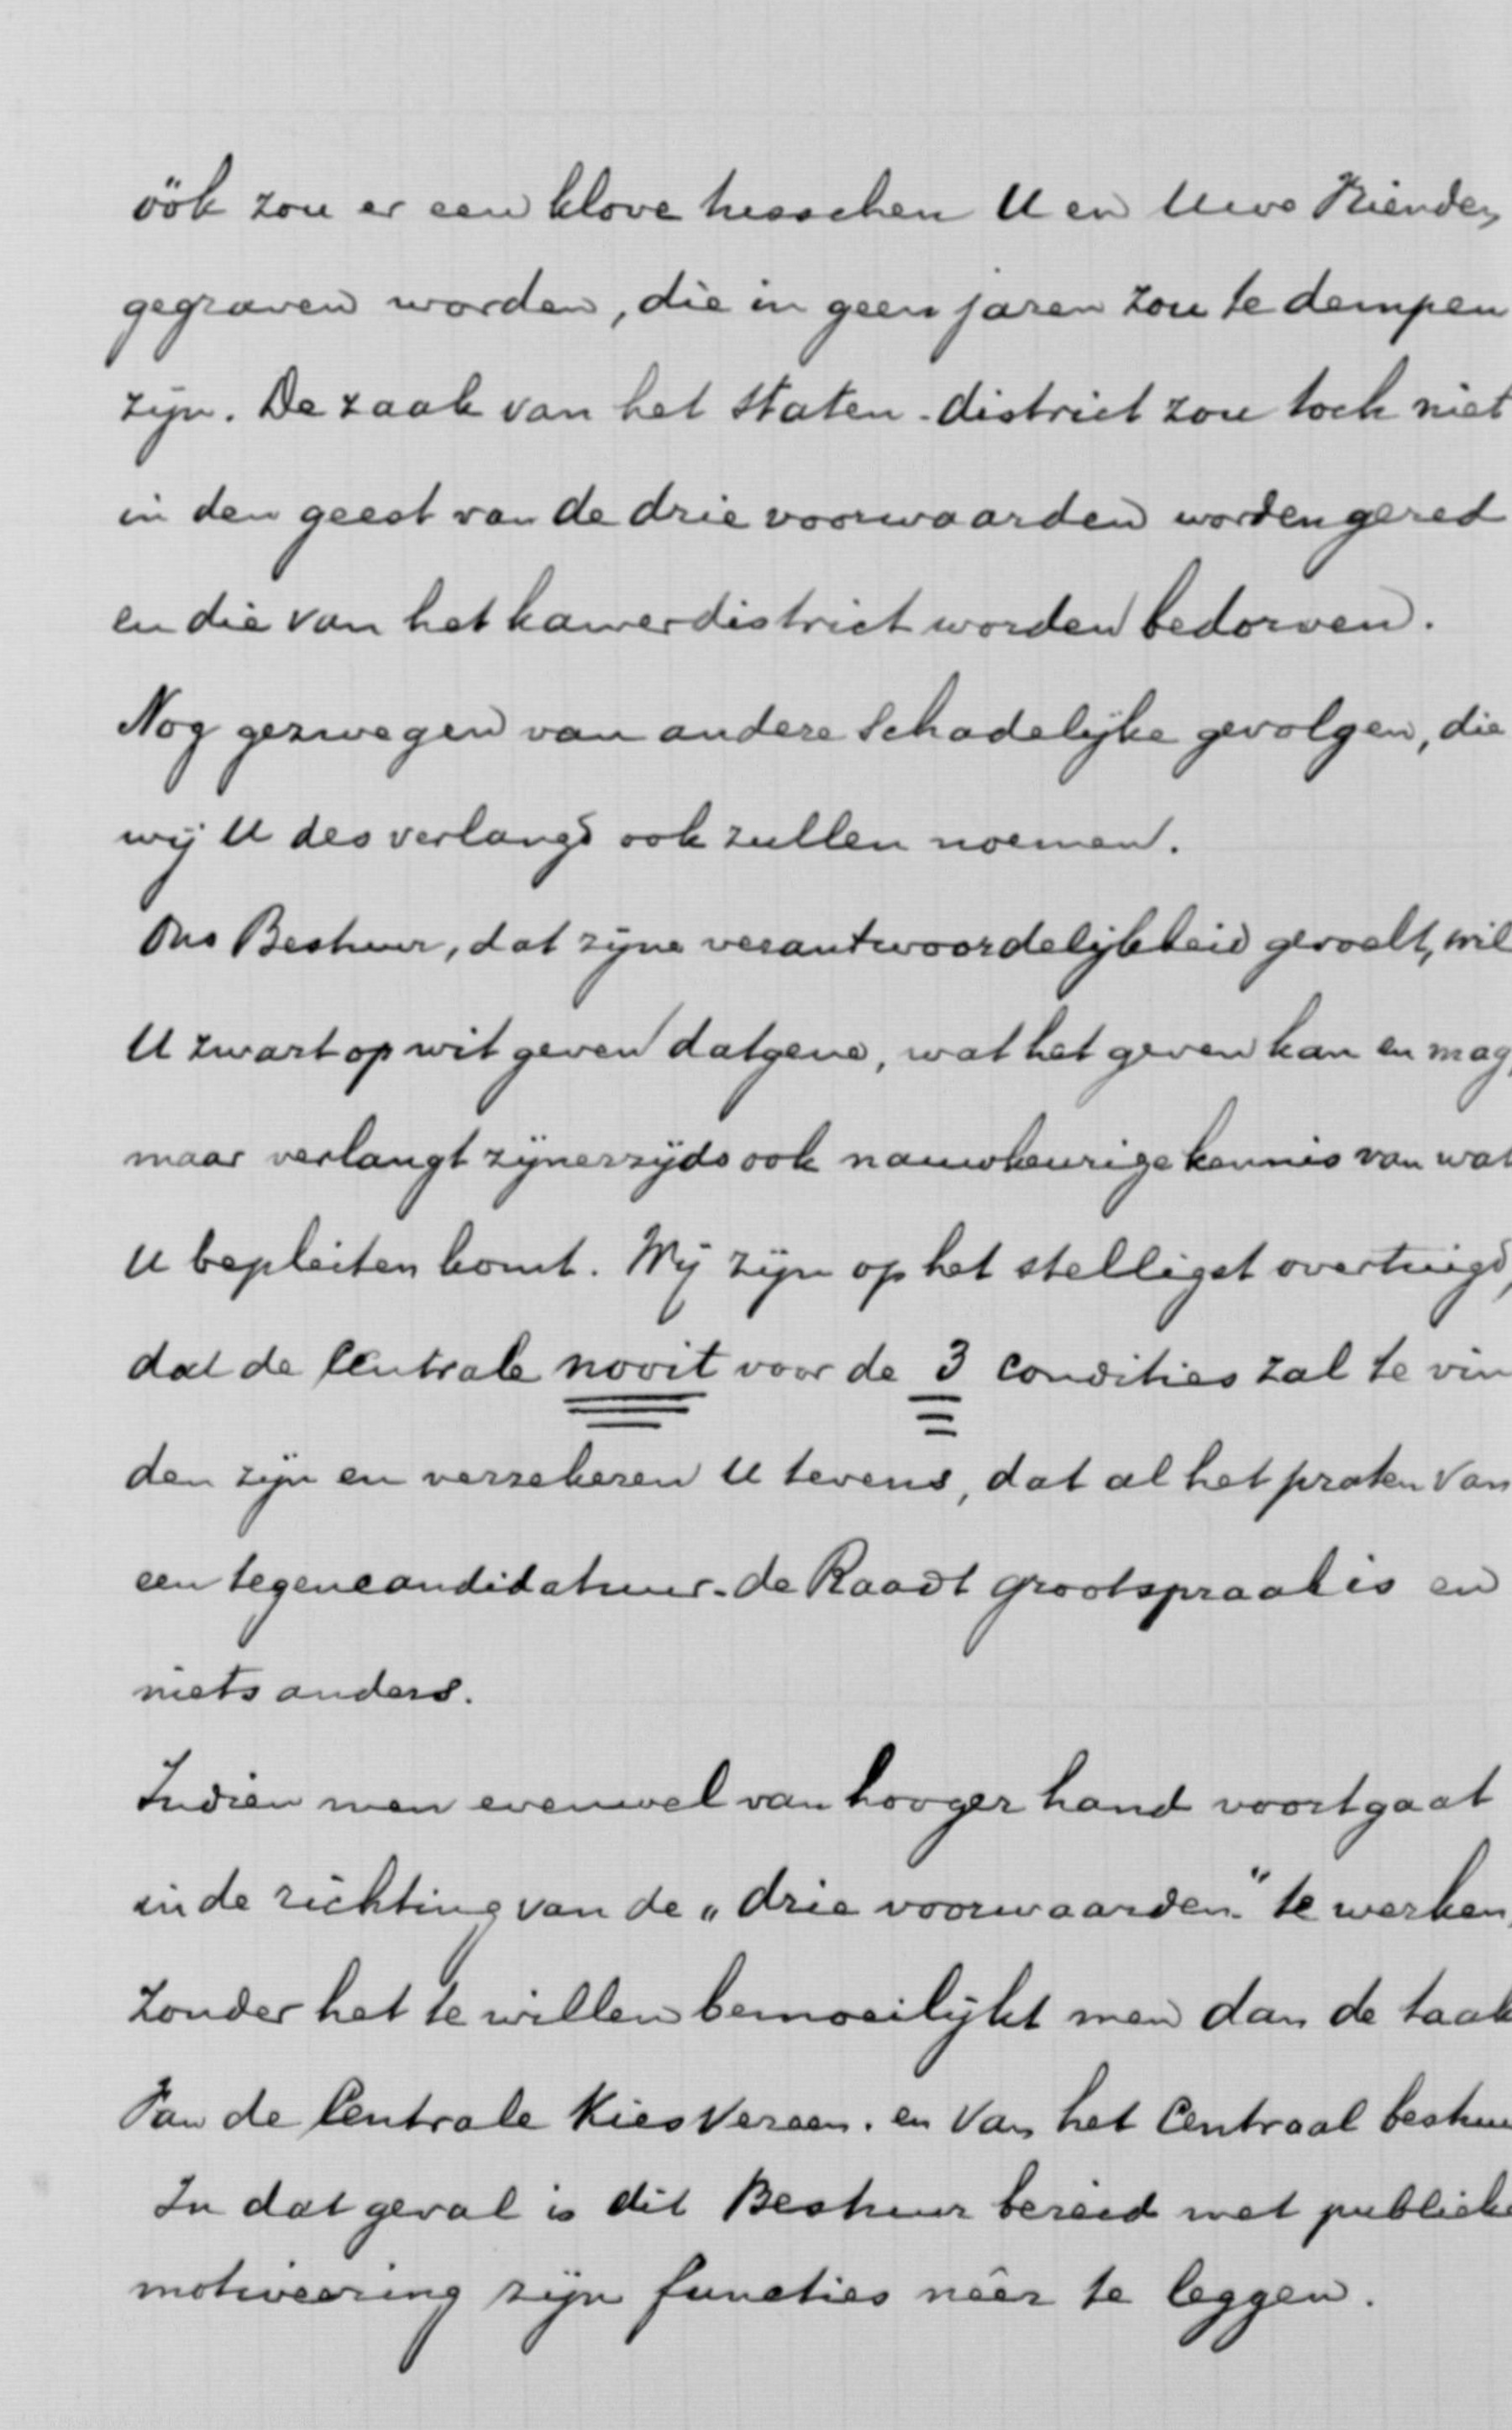 öök zou er een klove tusschen U en Uwe Vrienden
gegraven worden, die in geen jaren zou te dempen
zijn. De zaak van het Staten-district zou toch niet
in den geest van de drie voorwaarden worden gered
en die van het kamerdistrict worden bedorven.
Nog gezwegen van andere schadelijke gevolgen, die
wij U des verlangd ook zullen noemen.
Ons Bestuur, dat zijne verantwoordelijkheid gevoelt, wil
U zwart op wit geven datgene, wat het geven kan en mag,
maar verlangt zijnerzijds ook nauwkeurige kennis van wat
U bepleiten komt. Wij zijn op het stelligst overtuigd,
dat de Centrale nooit voor de 3 condities zal te vin
den zijn en verzekeren U tevens, dat al het praten van
een tegencandidatuur-de Raadt grootspraak is en
niets anders.
Indien men evenwel van hooger hand voortgaat
in de richting van de „drie voorwaarden" te werken,
zonder het te willen bemoeilijkt men dan de taak
Van de Centrale KiesVereen. en Van het Centraal bestuu
In dat geval is dit Bestuur bereid met publieke
motiveering zijn functies nêer te leggen.